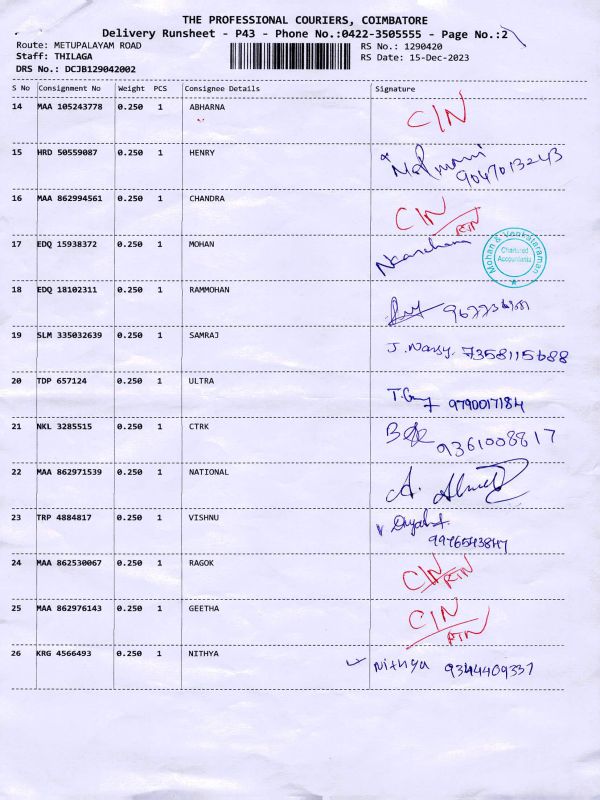 THE PROFESSIONAL COURIERS, COIMBATORE
Delivery Runsheet - P43 - Phone No.:0422-3505555 - Page No.:2
Route: METUPALAYAM ROAD RS No.: 1290420
Staff: THILAGA RS Date: 15-Dec-2023
DRS No.: DCJB129042002
S No Consignment No Weight PCS Consignee Details Signature
14 MAA 105243778 0.250 1 ABHARNA CIN
15 HRD 50559087 0.250 1 HENRY
9047013243
16 MAA 862994561 0.250 1 CHANDRA CIN
RTN
17 EDQ 15938372 0.250 1 MOHAN
Mohan & Venkataraman
Chartered
Accountants
18 EDQ 18102311 0.250 1 RAMMOHAN
19 SLM 335032639 0.250 1 SAMRAJ J. 7358115688
20 TDP 657124 0.250 1 ULTRA 9790017184
21 NKL 3285515 0.250 1 CTRK 9361008817
22 MAA 862971539 0.250 1 NATIONAL A.
23 TRP 4884817 0.250 1 VISHNU
24 MAA 862530067 0.250 1 RAGOK CIN
RTN
25 MAA 862976143 0.250 1 GEETHA CIN
RTN
26 KRG 4566493 0.250 1 NITHYA Nithya 9344409337